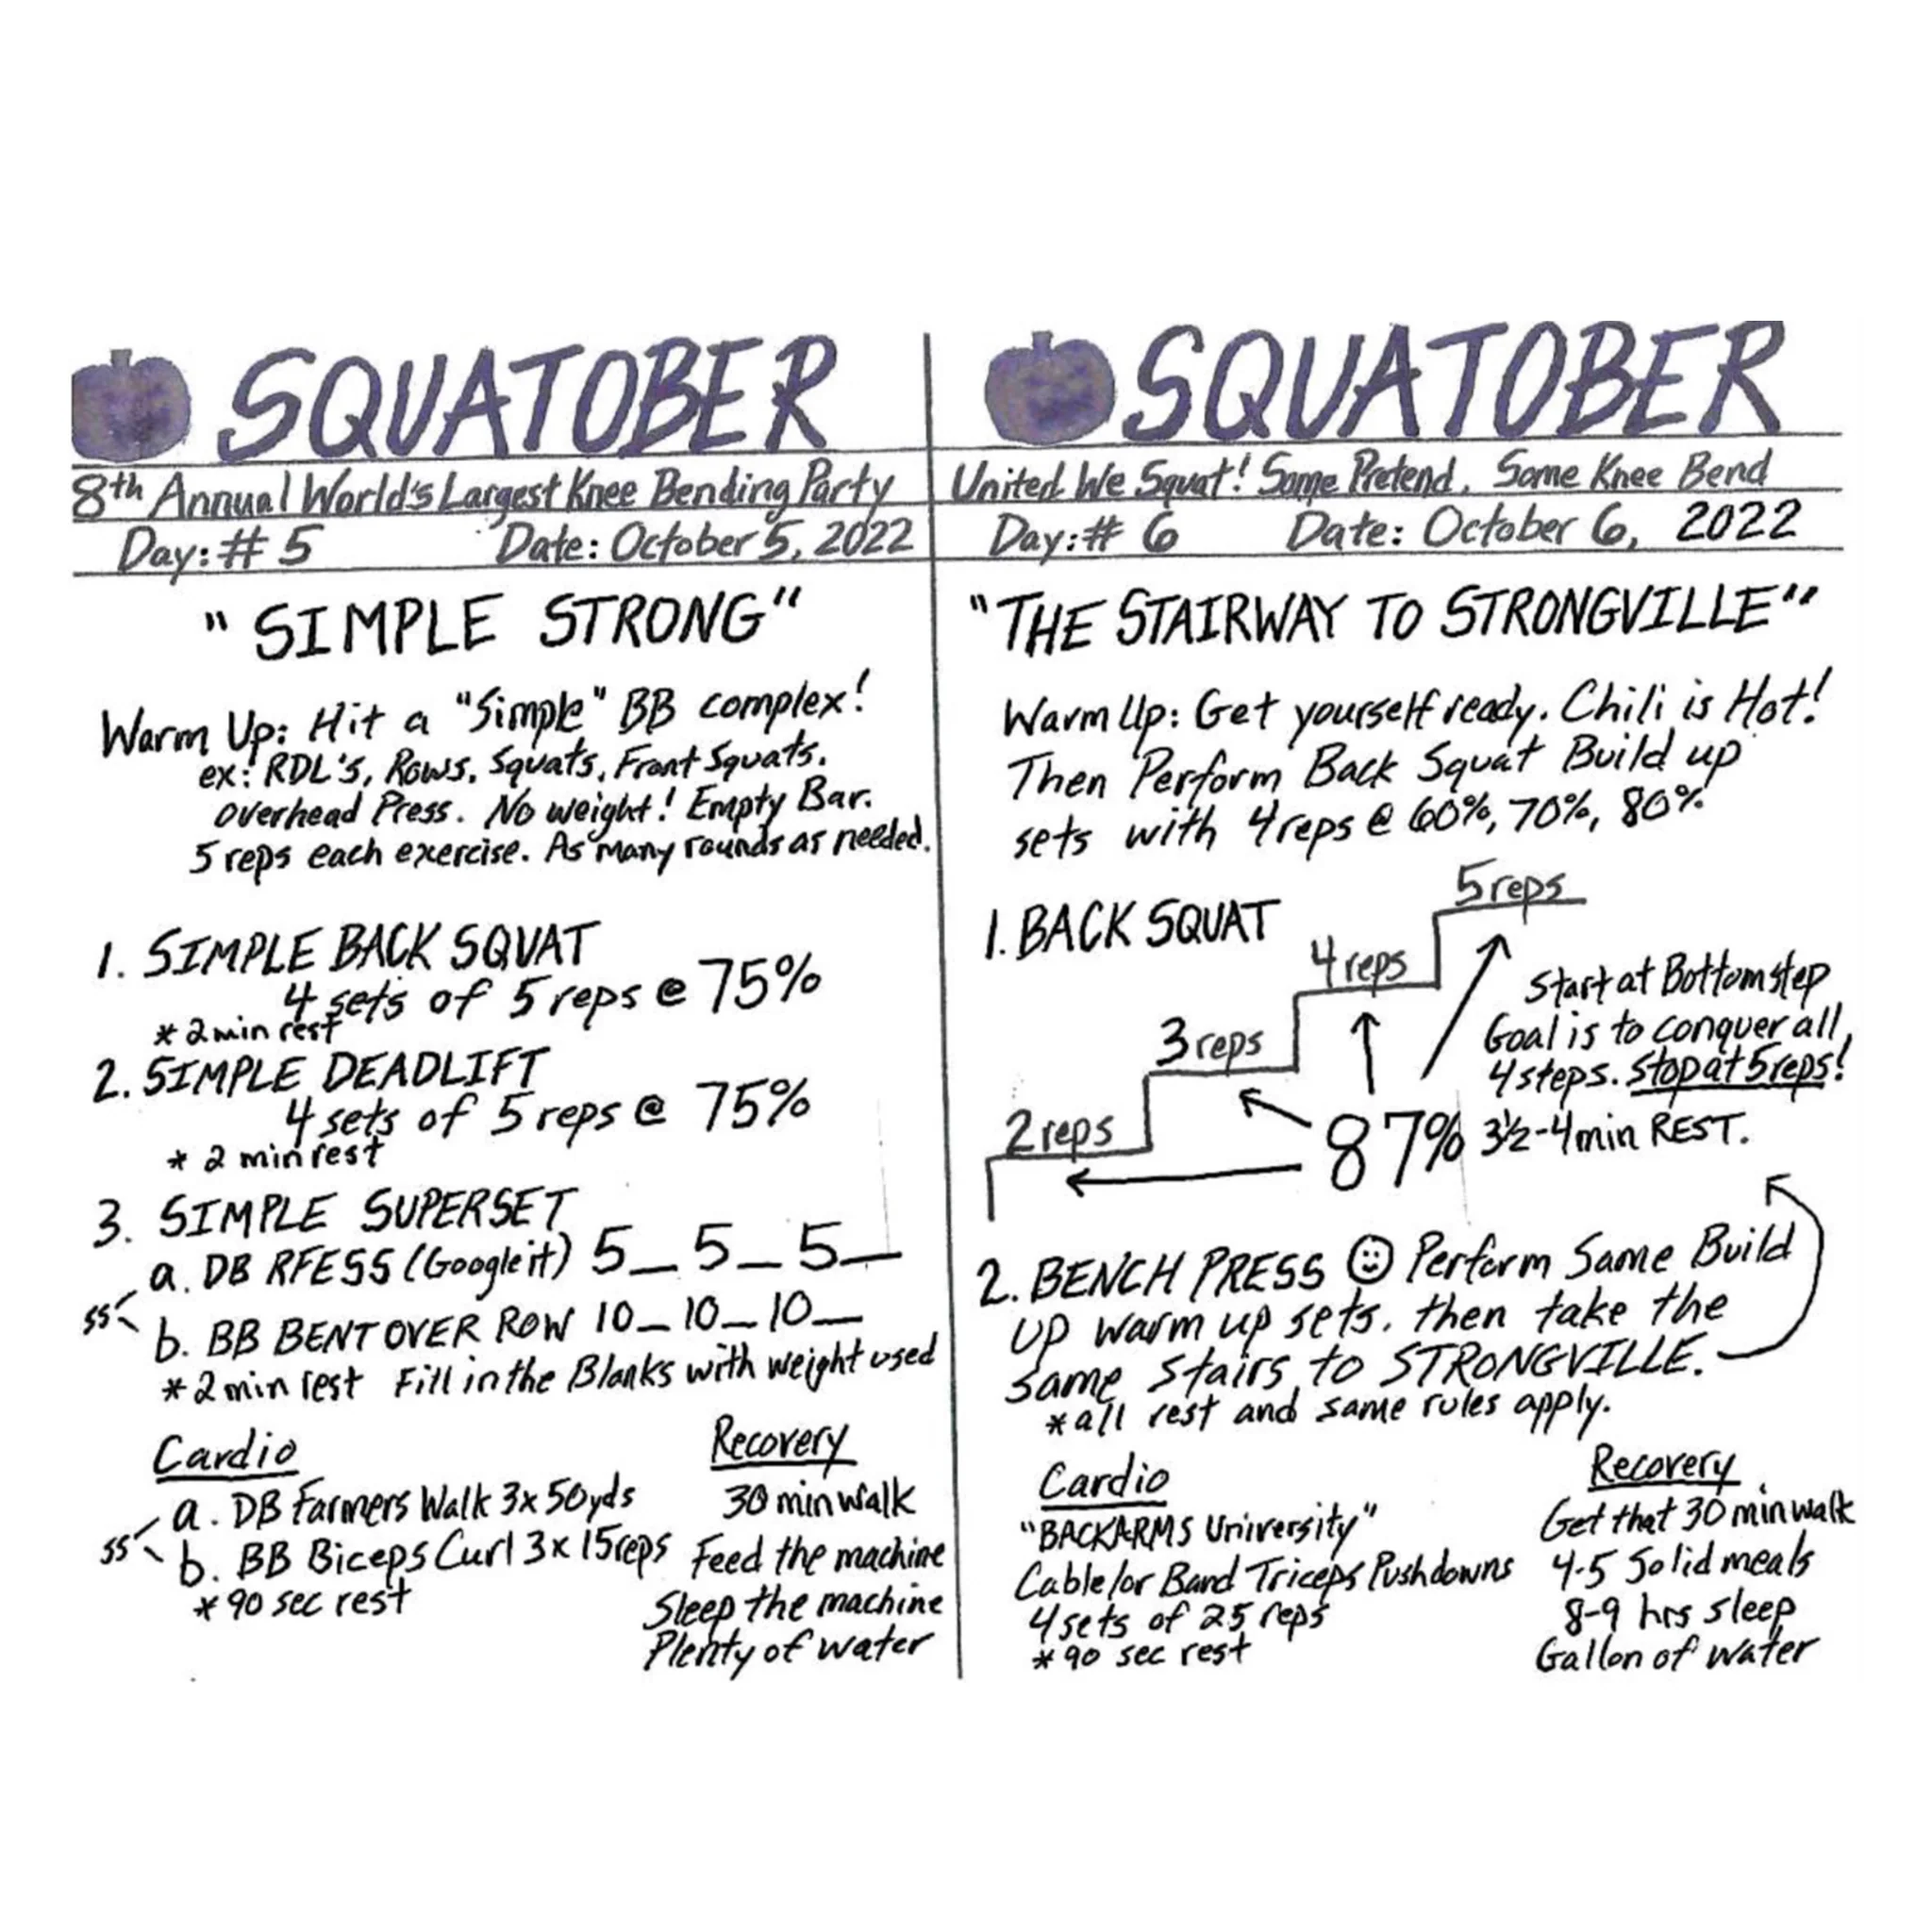 SQUATOBER
8th Annual World's Largest Knee Bending Party
Day: # 5 Date: October 5, 2022
"SIMPLE STRONG"
Warm Up: Hit a "Simple" BB complex!
ex: RDL's, Rows, Squats, Front Squats,
overhead Press. No weight! Empty Bar.
5 reps each exercise. As many rounds as needed.
1. SIMPLE BACK SQUAT
4 sets of 5 reps @ 75%
* 2 min rest
2. SIMPLE DEADLIFT
4 sets of 5 reps @ 75%
* 2 min rest
3. SIMPLE SUPERSET
a. DB RFESS (Google it) 5_ 5_ 5_
ss
b. BB BENT OVER ROW 10_ 10_ 10_
* 2 min rest Fill in the Blanks with weight used
Cardio
a. DB Farmers Walk 3x50yds
ss
b. BB Biceps Curl 3x15reps
* 90 sec rest
Recovery
30 min walk
Feed the machine
Sleep the machine
Plenty of water
SQUATOBER
United We Squat! Some Pretend, Some Knee Bend
Day: # 6 Date: October 6, 2022
"THE STAIRWAY TO STRONGVILLE"
Warm Up: Get yourself ready. Chili is Hot!
Then Perform Back Squat Build up
sets with 4 reps @ 60%, 70%, 80%
1. BACK SQUAT
5 reps
4 reps
3 reps
2 reps
87%
Start at Bottom step
Goal is to conquer all
4 steps. Stop at 5 reps!
3½-4min REST.
2. BENCH PRESS ☺ Perform Same Build
up warm up sets, then take the
same stairs to STRONGVILLE.
* all rest and same rules apply.
Cardio
"BACKARMS University"
Cable/or Band Triceps Pushdowns
4 sets of 25 reps
* 90 sec rest
Recovery
Get that 30 min walk
4-5 Solid meals
8-9 hrs sleep
Gallon of water